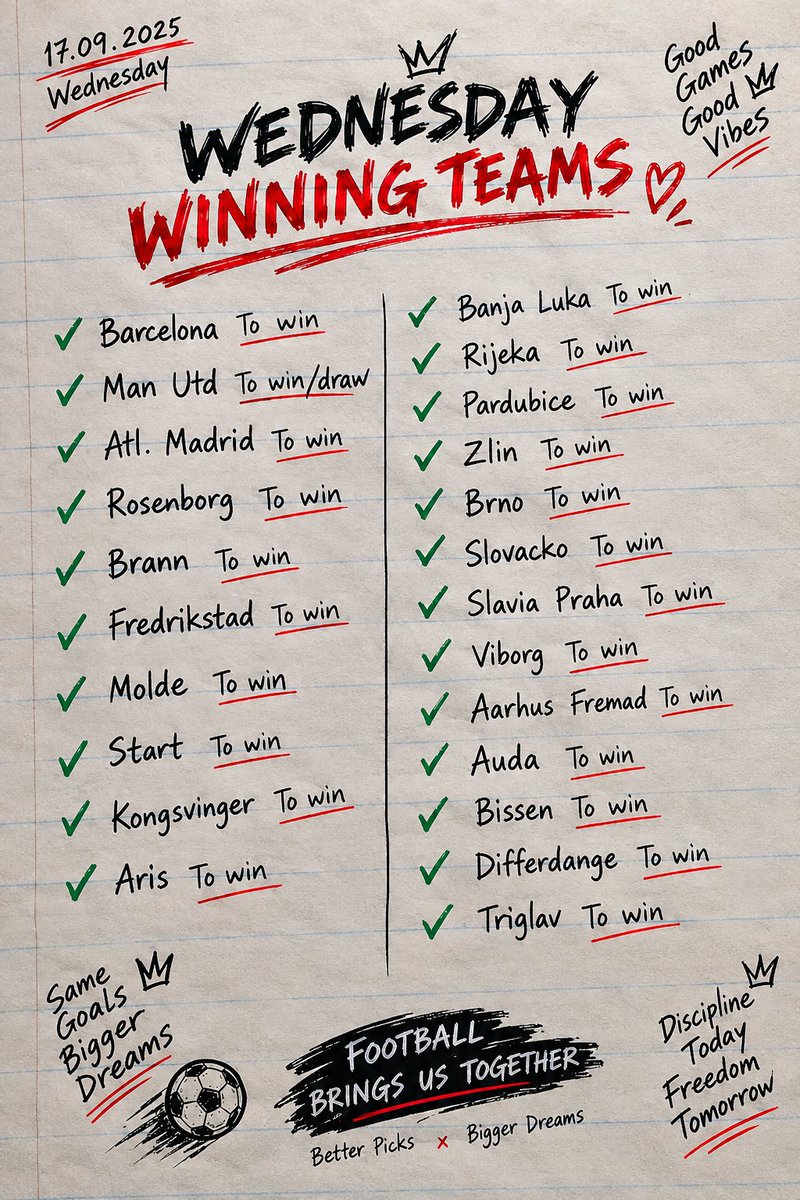 17.09.2025
Wednesday
Good
Games
Good
Vibes
WEDNESDAY
WINNING TEAMS
Barcelona To win
Man Utd To win/draw
Atl. Madrid To win
Rosenborg To win
Brann To win
Fredrikstad To win
Molde To win
Start To win
Kongsvinger To win
Aris To win
Banja Luka To win
Rijeka To win
Pardubice To win
Zlin To win
Brno To win
Slovacko To win
Slavia Praha To win
Viborg To win
Aarhus Fremad To win
Auda To win
Bissen To win
Differdange To win
Triglav To win
Same
Goals
Bigger
Dreams
FOOTBALL
BRINGS US TOGETHER
Better Picks x Bigger Dreams
Discipline
Today
Freedom
Tomorrow